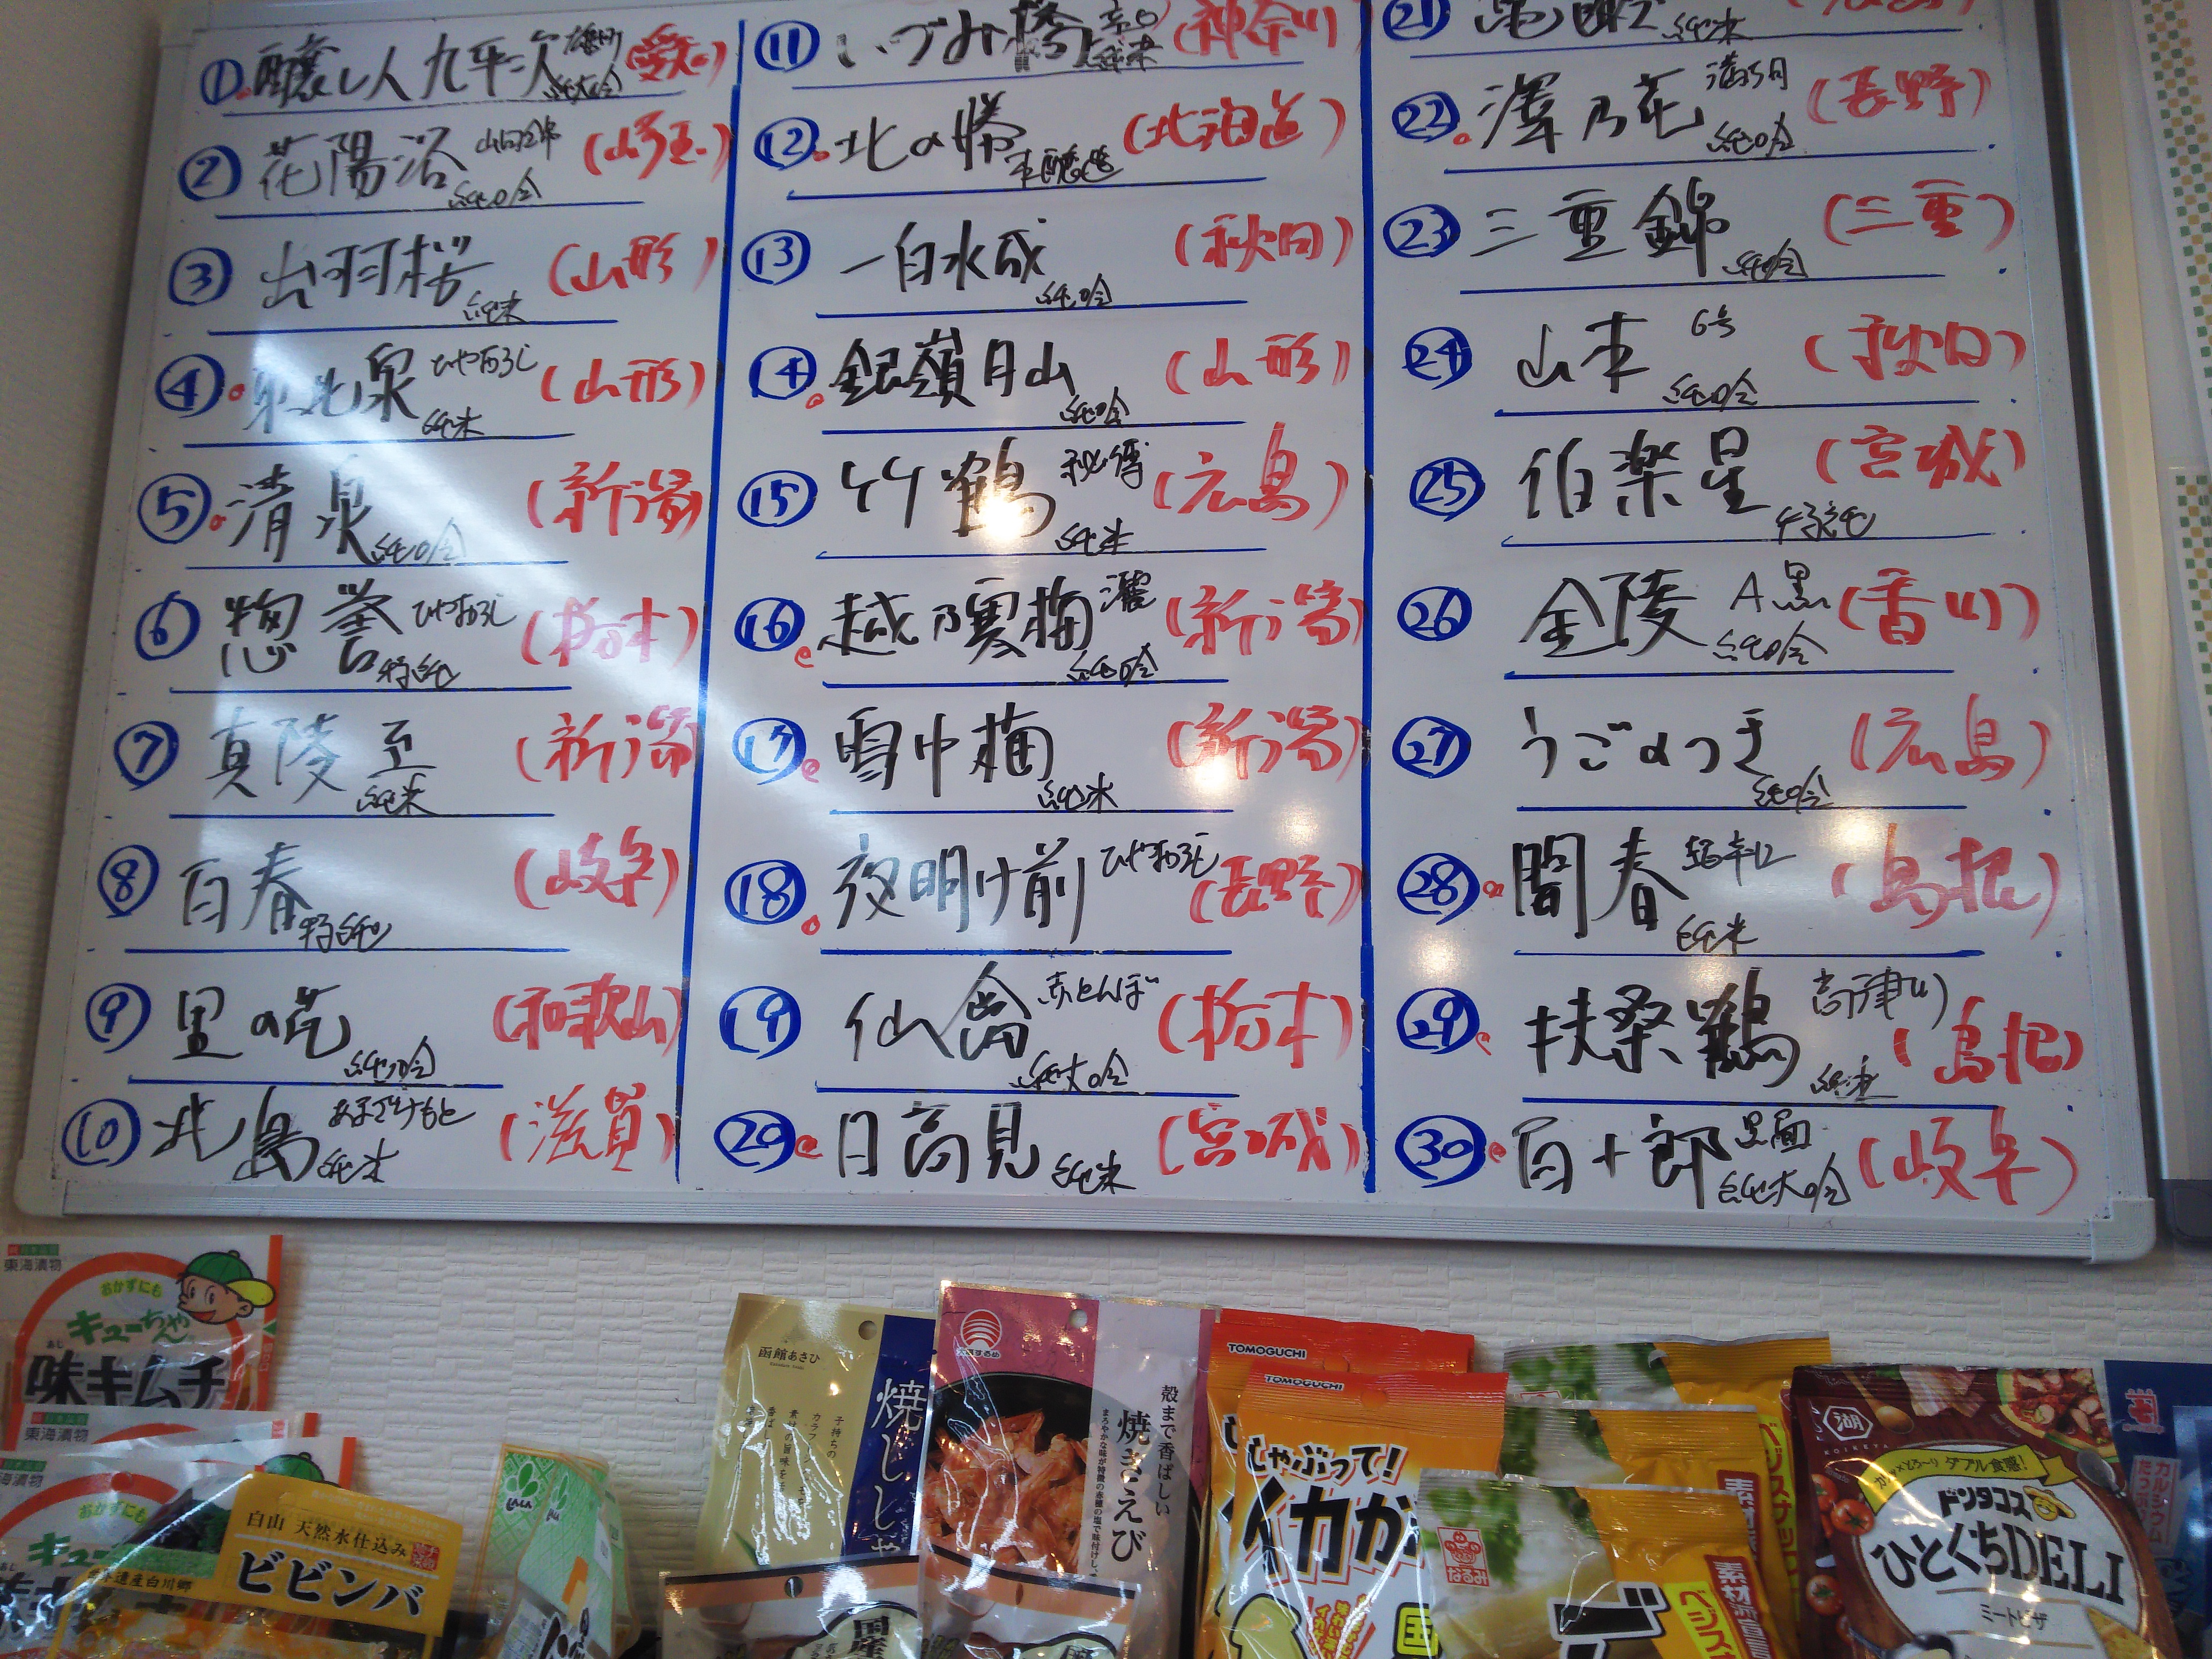 ① 醸し人九平次 雄町 純大吟 (愛知)
② 花陽浴 山田錦 純吟 (埼玉)
③ 出羽桜 純米 (山形)
④ 東北泉 ひやおろし 純米 (山形)
⑤ 清泉 純吟 (新潟)
⑥ 惣誉 ひやおろし 特純 (栃木)
⑦ 真陵 至 純米 (新潟)
⑧ 百春 特純 (岐阜)
⑨ 里の花 純吟 (和歌山)
⑩ 北島 あまざけもと 純米 (滋賀)
⑪ いづみ橋 辛口 純米 (神奈川)
⑫ 北の勝 本醸造 (北海道)
⑬ 一白水成 純吟 (秋田)
⑭ 銀嶺月山 純吟 (山形)
⑮ 竹鶴 秘傳 純米 (広島)
⑯ 越乃寒梅 灑 純吟 (新潟)
⑰ 雪中梅 純米 (新潟)
⑱ 夜明け前 ひやおろし (長野)
⑲ 仙禽 赤とんぼ 純大吟 (栃木)
⑳ 日高見 純米 (宮城)
㉑ 純米
㉒ 澤乃花 純吟 (長野)
㉓ 三重錦 純吟 (三重)
㉔ 山本 6号 純吟 (秋田)
㉕ 伯楽星 特純 (宮城)
㉖ 金陵 A黒 純吟 (香川)
㉗ うごのつき 純吟 (広島)
㉘ 開春 超辛口 純米 (島根)
㉙ 扶桑鶴 高津川 純米 (島根)
㉚ 百十郎 黒面 純大吟 (岐阜)
東海漬物
おかずにも
キューちゃん
あじ
味キムチ
東海漬物
おかずにも
白山 天然水仕込み
ビビンバ
函館あさひ
焼しし
殻まで香ばしい
焼きえび
TOMOGUCHI
TOMOGUCHI
しゃぶって!
イカが
国
国産
なるみ
ベジスナック
素材
湖
KOIKEYA
ダブル食感!
ドンタコス
ひとくちDELI
ミートピザ
カルシウム
たっぷり